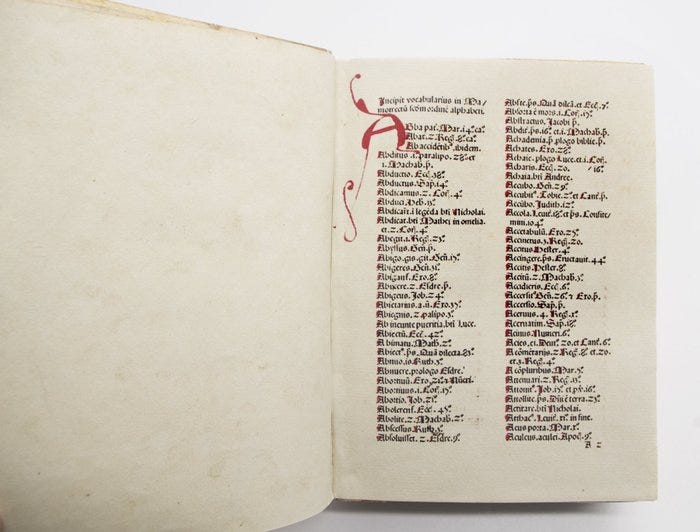 Incipit vocabularius in Ma/
motrectū scḋm ordinē alphabeti.
ABba pat̃. Mar. i4. ca°
Abat. 2. Reg̃. 8. ca°
Ab accidẽtib⁹. ibidem.
Abditus .i. paralipo. 28. et
i. Machab. p̊.
Abductio. Ecc̃. 38.
Abductus. Sap. i4.
Abdicamus. 2. Cor̃. 4.
Abduci. Heb. i3.
Abdicar̃t ĩ legẽda bt̃i Nicholai.
Abdicat bt̃i Mathei in omelia
et. 2. Cor̃. 4.
Abegit. i. Reg̃. 23.
Abyssus. Gen̄. p̊.
Abigo. gis. git. Gen̄. i5.
Abigeres. Gen̄. 3i.
Abigant̃. Exo. 8.
Abicere. 2. Esdre. p̊.
Abigeus. Job. 24.
Abietarius. a. ū. Exo. 35.
Abiegnis. 2. palipo. 3.
Ab ineunte pueritia. bt̃i Luce.
Abiectū. Ecc̃. 42.
Abimatu. Math. 2.
Abiect⁹. ps. Quã dilecta. 83.
Abitio. is. Ruth. 3.
Abnuere. prologo Esdre.
Abortiuũ. Exo. 21. 2 Nũeri.
Abortiuus. i. Cor̃. i5.
Abortio. Job. 2i.
Abolerent̃. Ecc̃. 45.
Abolite. 2. Machab. 2.
Abscessus. Ruth. 3.
Absoluisset. 2. Esdre. 9.
Absit. ps. Quã dilcã. et. Ecc̃. 7.
Absorta ē mors. i. Cor̃. i5.
Abstractus. Jacobi p̊.
Abdit̃. ps. i6. et. i. Machab. p̊.
Achademia. p̊. plogo biblie. p̊.
Achates. Exo. 28.
Achaie. plogo Luce. et. i. Cor̃.
Acharis. Ecc̃. 20. /i6.
Achaia. bt̃i Andree.
Accubo. Gen̄. 29.
Accubit⁹. Tobie. 2. et Cant̃. p̊.
Accũbo. Judith. i2.
Accola. Leuit̃. i8. et ps. Confite/
mini. i04.
Acetabulũ. Exo. 25.
Accinctus. 3. Reg̃. 20.
Accitus Hester. 4.
Accingere. ps. Eructauit. 44.
Accitis Hester. 8.
Accitū. 2. Machab. 3.
Accidieris. Ecc̃. 6.
Accersit⁹ Gen̄. 26. 2 Exo. p̊.
Accersio. Sap. p̊.
Aceruus. 4. Reg̃. i.
Aceruatim. Sap. i8.
Acinus Numeri. 6.
Acies. et. Deut̃. 20. et Cant̃. 6.
Acõmetariis. 2. Reg̃. 8. et. 20.
et. 3. Reg̃. 4.
A cõpluribus. Mar. 5.
Attenuari. 2. Reg̃. i3.
Attonit⁹. Job. i7. et p̃v. i6.
Attollite. ps. Dñi ē terra. 23.
Actitare. bt̃i Nicholai.
Attac⁹. Leuit̃. xi. in fine.
Acus porta. Mar. x.
Aculeus. aculei. Apoc̃. 9.
A 2